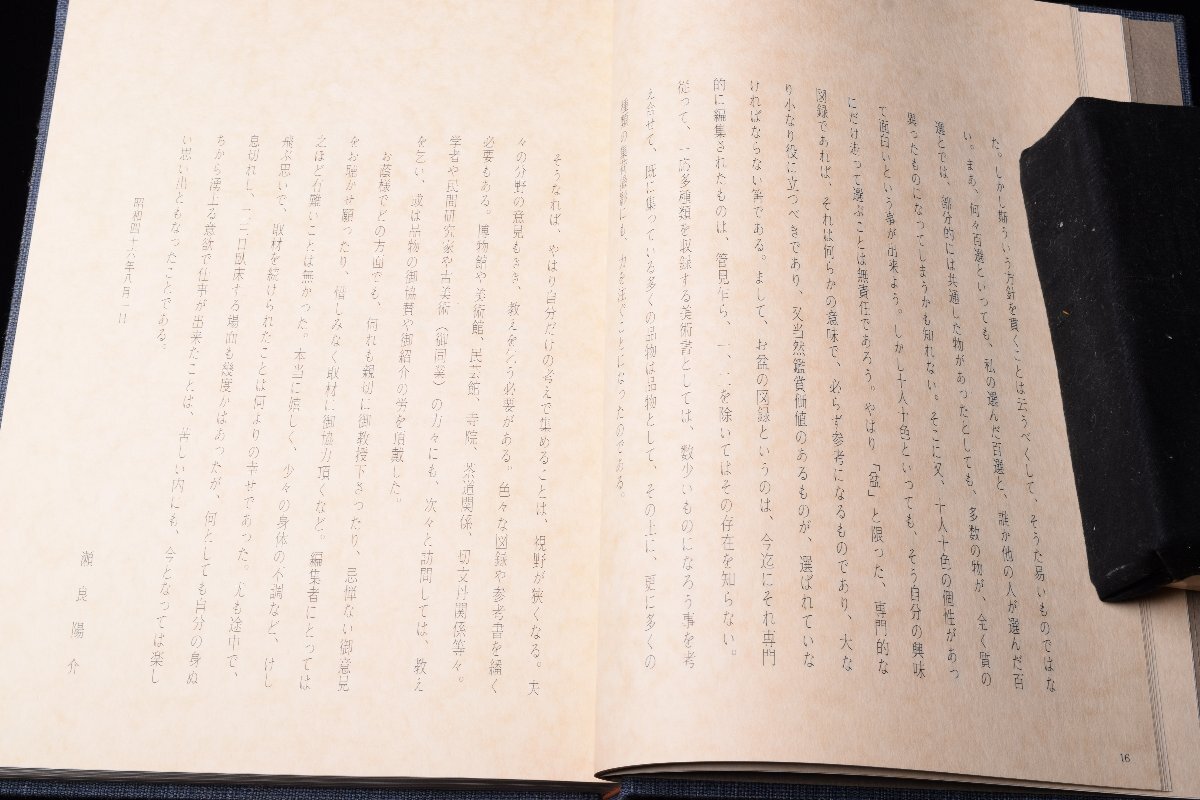 た。しかし斯ういう方針を貫くことは云うべくして、そうた易いものではな
い。まあ、何々百選といっても、私の選んだ百選と、誰か他の人が選んだ百
選とでは、部分的には共通した物があったとしても、多数の物が、全く質の
異ったものになってしまうかも知れない。そこに又、十人十色の個性があっ
て面白いという事が出来よう。しかし十人十色といっても、そう自分の興味
にだけ走って選ぶことは無責任であろう。やはり「盆」と限った、専門的な
図録であれば、それは何らかの意味で、必らず参考になるものであり、大な
り小なり役に立つべきであり、又当然鑑賞価値のあるものが、選ばれていな
ければならない筈である。まして、お盆の図録というのは、今迄にそれ専門
的に編集されたものは、管見乍ら、一、二を除いてはその存在を知らない。
従って、一応多種類を収録する美術書としては、数少いものになろう事を考
え合せて、既に集っている多くの品物は品物として、その上に、更に多くの
種類の集録にも、力を注ぐことになったのである。
そうなれば、やはり自分だけの考えで集めることは、視野が狭くなる。夫
々の分野の意見もきき、教えを乞う必要がある。色々な図録や参考書を繙く
必要もある。博物館や美術館、民芸館、寺院、茶道関係、切支丹関係等々。
学者や民間研究家や古美術（御同業）の方々にも、次々と訪問しては、教え
を乞い、或は品物の御協賛や御紹介の労を頂戴した。
お蔭様でどの方面でも、何れも親切に御教授下さったり、忌憚ない御意見
をお聞かせ願ったり、惜しみなく取材に御協力頂くなど。編集者にとっては
之ほど有難いことは無かった。本当に嬉しく、少々の身体の不調など、けし
飛ぶ思いで、取材を続けられたことは何よりの幸せであった。尤も途中で、
息切れし、二、三日臥床する場面も幾度かはあったが、何としても自分の身ぬ
ちから湧上る意欲で仕事が出来たことは、苦しい内にも、今となっては楽し
い思い出ともなったことである。
昭和四十六年八月一日
瀬良陽介
16